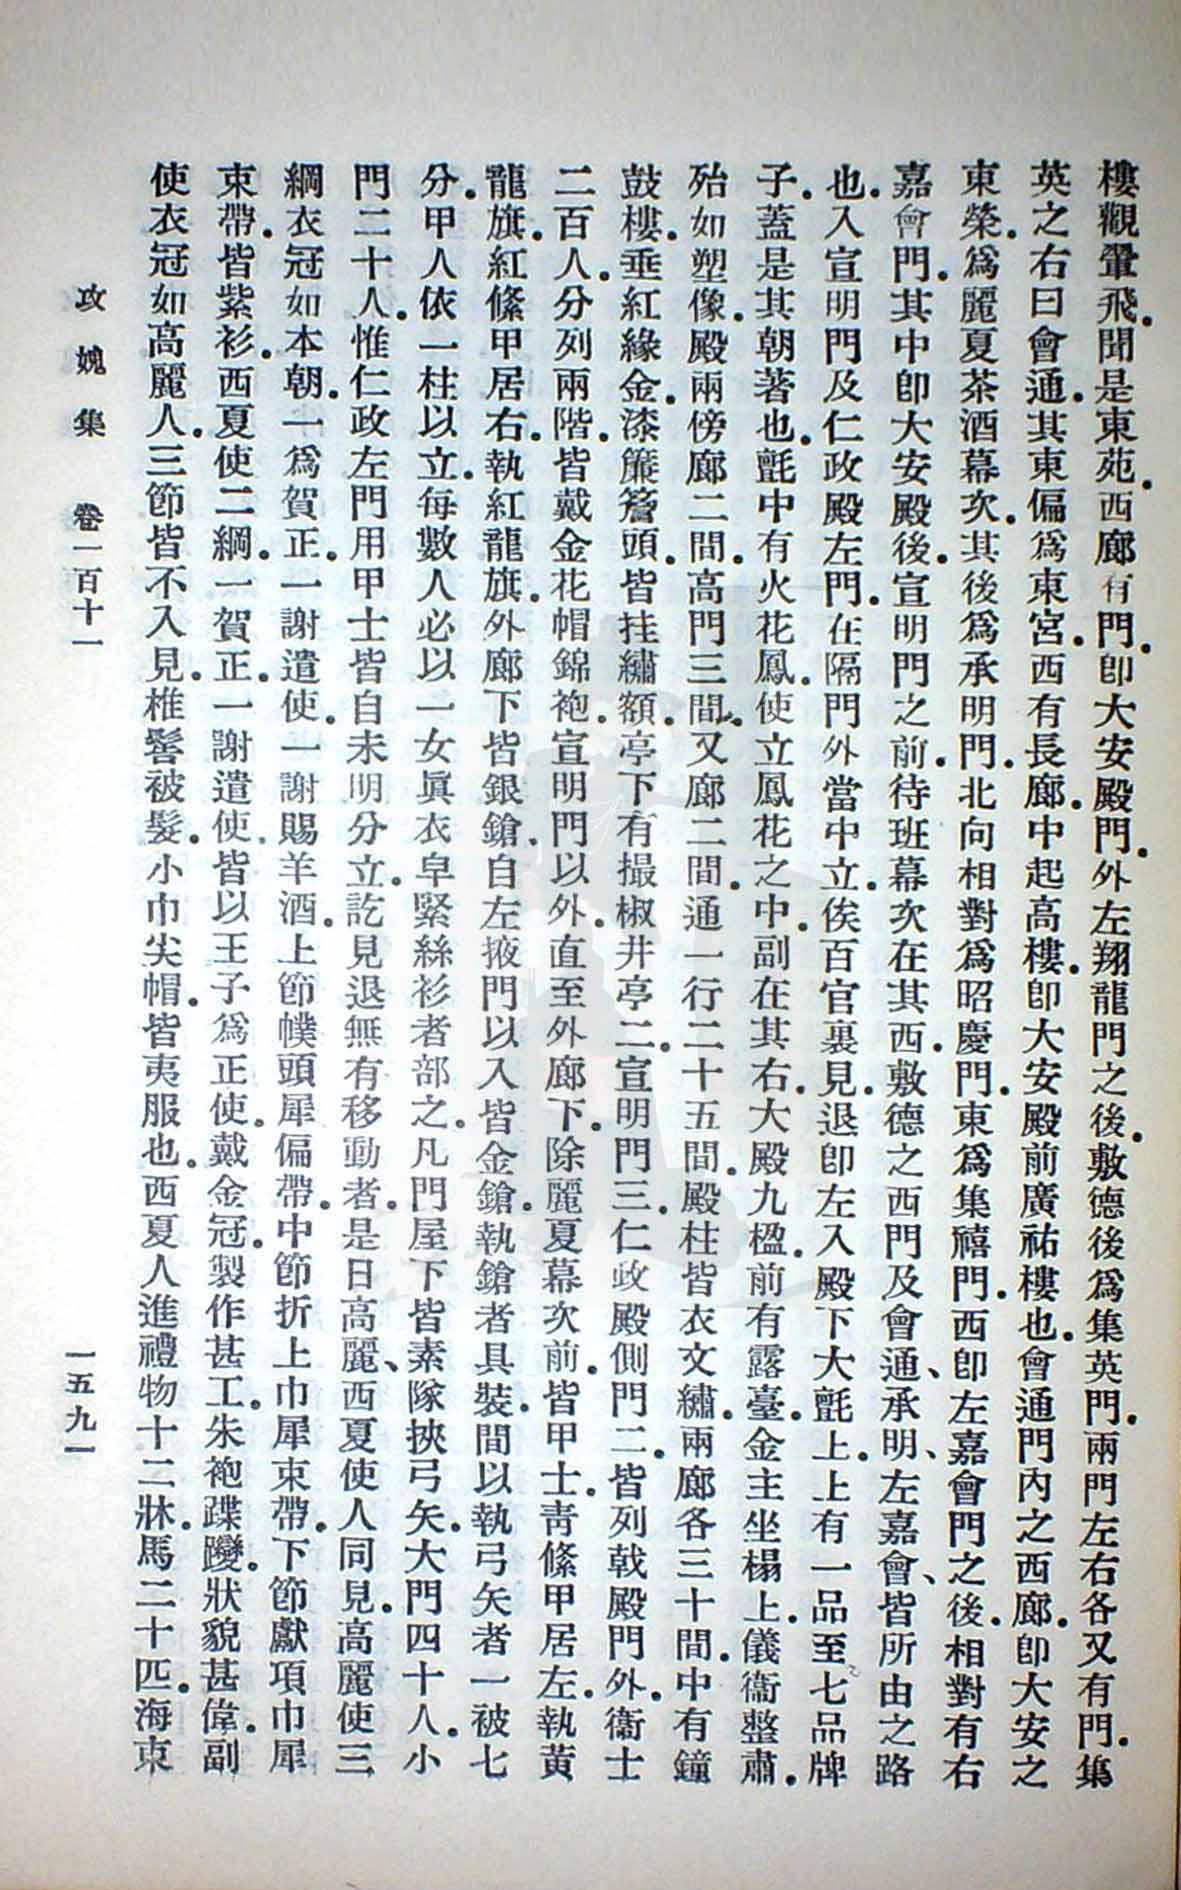 樓觀翬飛．聞是東苑．西廊有門．卽大安殿門．外左翔龍門之後．敷德後爲集英門．兩門左右各又有門．集
英之右曰會通．其東偏爲東宮．西有長廊．中起高樓．卽大安殿前廣祐樓也．會通門內之西廊．卽大安之
東榮．爲麗夏茶酒幕次．其後爲承明門．北向相對爲昭慶門．東爲集禧門．西卽左嘉會門之後．相對有右
嘉會門．其中卽大安殿後．宣明門之前．待班幕次在其西．敷德之西門及會通、承明、左嘉會、皆所由之路
也．入宣明門及仁政殿左門．在隔門外當中立．俟百官裏見．退卽左入殿下大氈上．上有一品至七品牌
子．蓋是其朝著也．氈中有火花鳳．使立鳳花之中．副在其右．大殿九楹．前有露臺．金主坐榻上．儀衞整肅．
殆如塑像．殿兩傍廊二間．高門三間．又廊二間．通一行二十五間．殿柱皆衣文繡．兩廊各三十間．中有鐘
鼓樓．垂紅緣金漆簾簷頭．皆挂繡額．亭下有撮椒井亭二．宣明門三．仁政殿側門二．皆列戟殿門外．衞士
二百人．分列兩階．皆戴金花帽錦袍．宣明門以外．直至外廊下．除麗夏幕次前．皆甲士．靑絛甲居左．執黃
龍旗．紅絛甲居右．執紅龍旗．外廊下皆銀鎗．自左掖門以入皆金鎗．執鎗者具裝．間以執弓矢者一被七
分．甲人依一柱以立．每數人必以一女眞衣皁緊絲衫者部之．凡門屋下皆素隊挾弓矢．大門四十人．小
門二十人．惟仁政左門用甲士．皆自未明分立．訖見退無有移動者．是日高麗、西夏使人同見．高麗使三
綱．衣冠如本朝．一爲賀正．一謝遣使．一謝賜羊酒．上節幞頭犀偏帶．中節折上巾犀束帶．下節獻項巾犀
束帶．皆紫衫．西夏使二綱．一賀正．一謝遣使．皆以王子爲正使．戴金冠．製作甚工．朱袍蹀躞．狀貌甚偉．副
使衣冠如高麗人．三節皆不入見．椎髻被髮．小巾尖帽．皆夷服也．西夏人進禮物十二牀．馬二十匹．海東
攻媿集　卷一百十一　一五九一